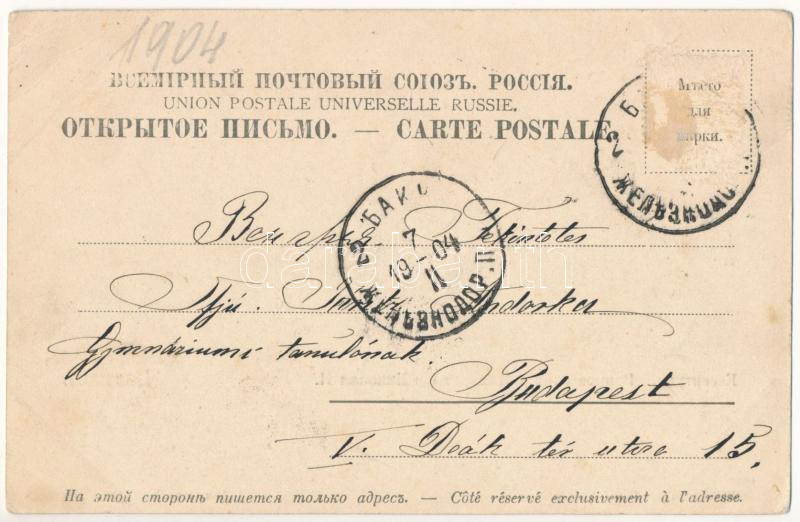 1904
ВСЕМІРНЫЙ ПОЧТОВЫЙ СОЮЗЪ. РОССІЯ.
UNION POSTALE UNIVERSELLE RUSSIE.
ОТКРЫТОЕ ПИСЬМО. — CARTE POSTALE
Мѣсто
для
марки.
Б
2 ЖЕЛѢЗНОДО
БАК
7
19 — 04
II
ЖЕЛѢЗНОДОР. П
Венгрія Tekintetes
Ifjú. Andorka
Gymnáziumi tanulónak.
Budapest
V. Deák tér utca 15,
darabanth
На этой сторонѣ пишется только адресъ. — Côté réservé exclusivement à l'adresse.